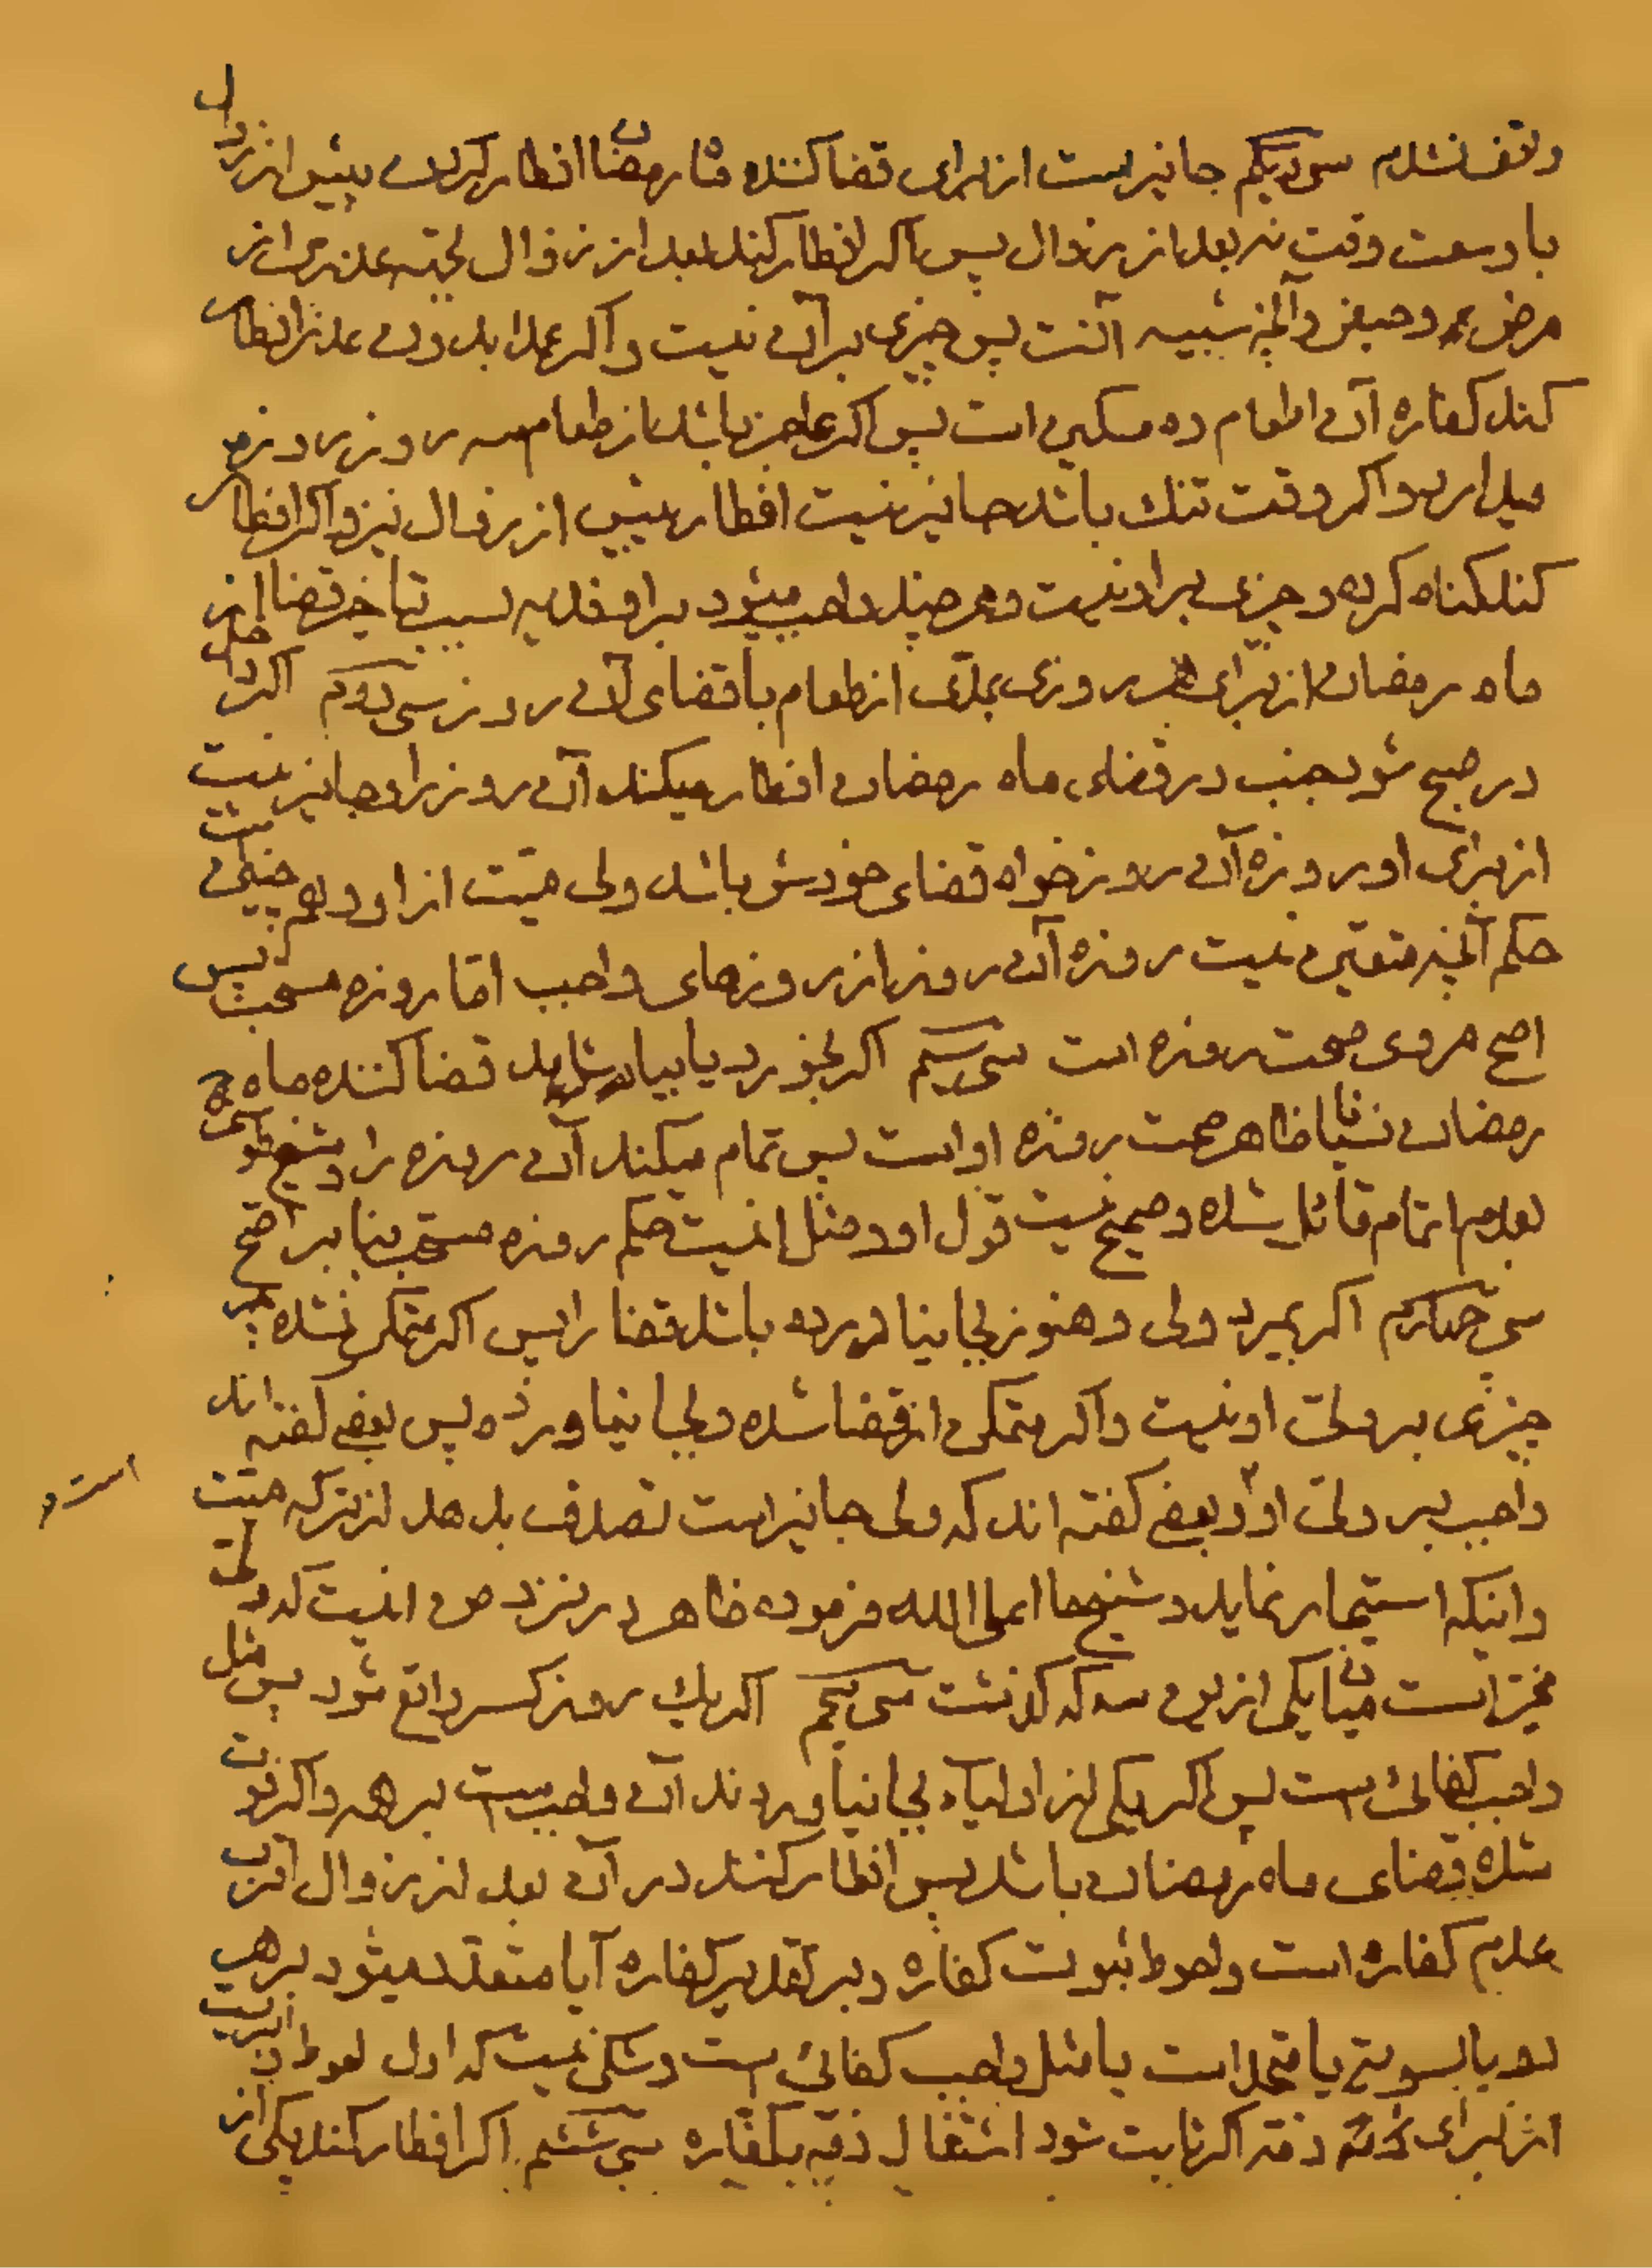 واقف نشدم سی‌ویکم جایز است از برای قضا کننده ماه رمضان افطار کردن پیش از زوال
با وسعت وقت نه بعد از زوال پس اگر افطار کند بعد از زوال بجهة عذری از
مرض و حیض و آنچه شبیه آنست پس چیزی بر آن نیست و اگر عمدا بدون عذر افطار
کند کفاره آن اطعام ده مسکین است پس اگر عاجز باشد از طعام سه روز روزه
میدارد و اگر وقت تنک باشد جایز نیست افطار پیش از زوال نیز و اگر افطار
کند کناه کرده و چیزی بر او نیست و هرچند واجب میشود بر او فدیه بسبب تاخیر قضا از
ماه رمضان از برای هر روزی بمدی از طعام با قضای آن روز سی‌ودوم اگر داخل
در صبح شود جنب در قضاء ماه رمضان افطار میکند آن روز را و جایز نیست
از برای او روزه آن روز خواه قضای خودش باشد ولی میت از او و همچنین است
حکم آنچه متعین نیست روزه آن روز از روزهای واجب اما روزه مستحب پس
اصح مروی صحت روزه است سی‌وسیم اگر بخورد یا بیاشامد قضا کننده ماه
رمضان نسیانا ظاهر صحت روزه او است پس تمام میکند آن روزه را و شیخ طوسی
بعدم اتمام قائل شده و صحیح نیست قول او و مثل اینست حکم روزه مستحب بنا بر اصح
سی‌وچهارم اگر بمیرد ولی و هنوز بجا نیاورده باشد قضا را پس اگر متمکن نشده
چیزی بر ولی او نیست و اگر متمکن از قضا شده و بجا نیاورده پس بعضی گفته اند
واجب بر ولی او است و بعضی گفته اند که ولی جایز است تصدق بدهد از ترکه میت
و اینکه استیجار نماید و شیخ ما اعلی الله فرموده ظاهر در نزد من اینست که ولی
مخیر است میان یکی ازین سه که گذشت سی‌وپنجم اگر یک روز کسر واقع شود پس مثل
واجب کفائی است پس اگر یکی از اولیاء بجا نیاوردند آن واجب است بر همه و اگر فوت
شده قضای ماه رمضان باشد پس افطار کنند در آن بعد از زوال اقرب
عدم کفاره است و احوط ثبوت کفاره و بر تقدیر کفاره آیا متعدد میشود بر هر
دو یا بالسویه یا متحد است یا مثل واجب کفائی است و شکی نیست که اول احوط
از برای ذمه اگر ثابت شود اشتغال ذمه بکفاره سی‌وششم اگر افطار کند یکی از